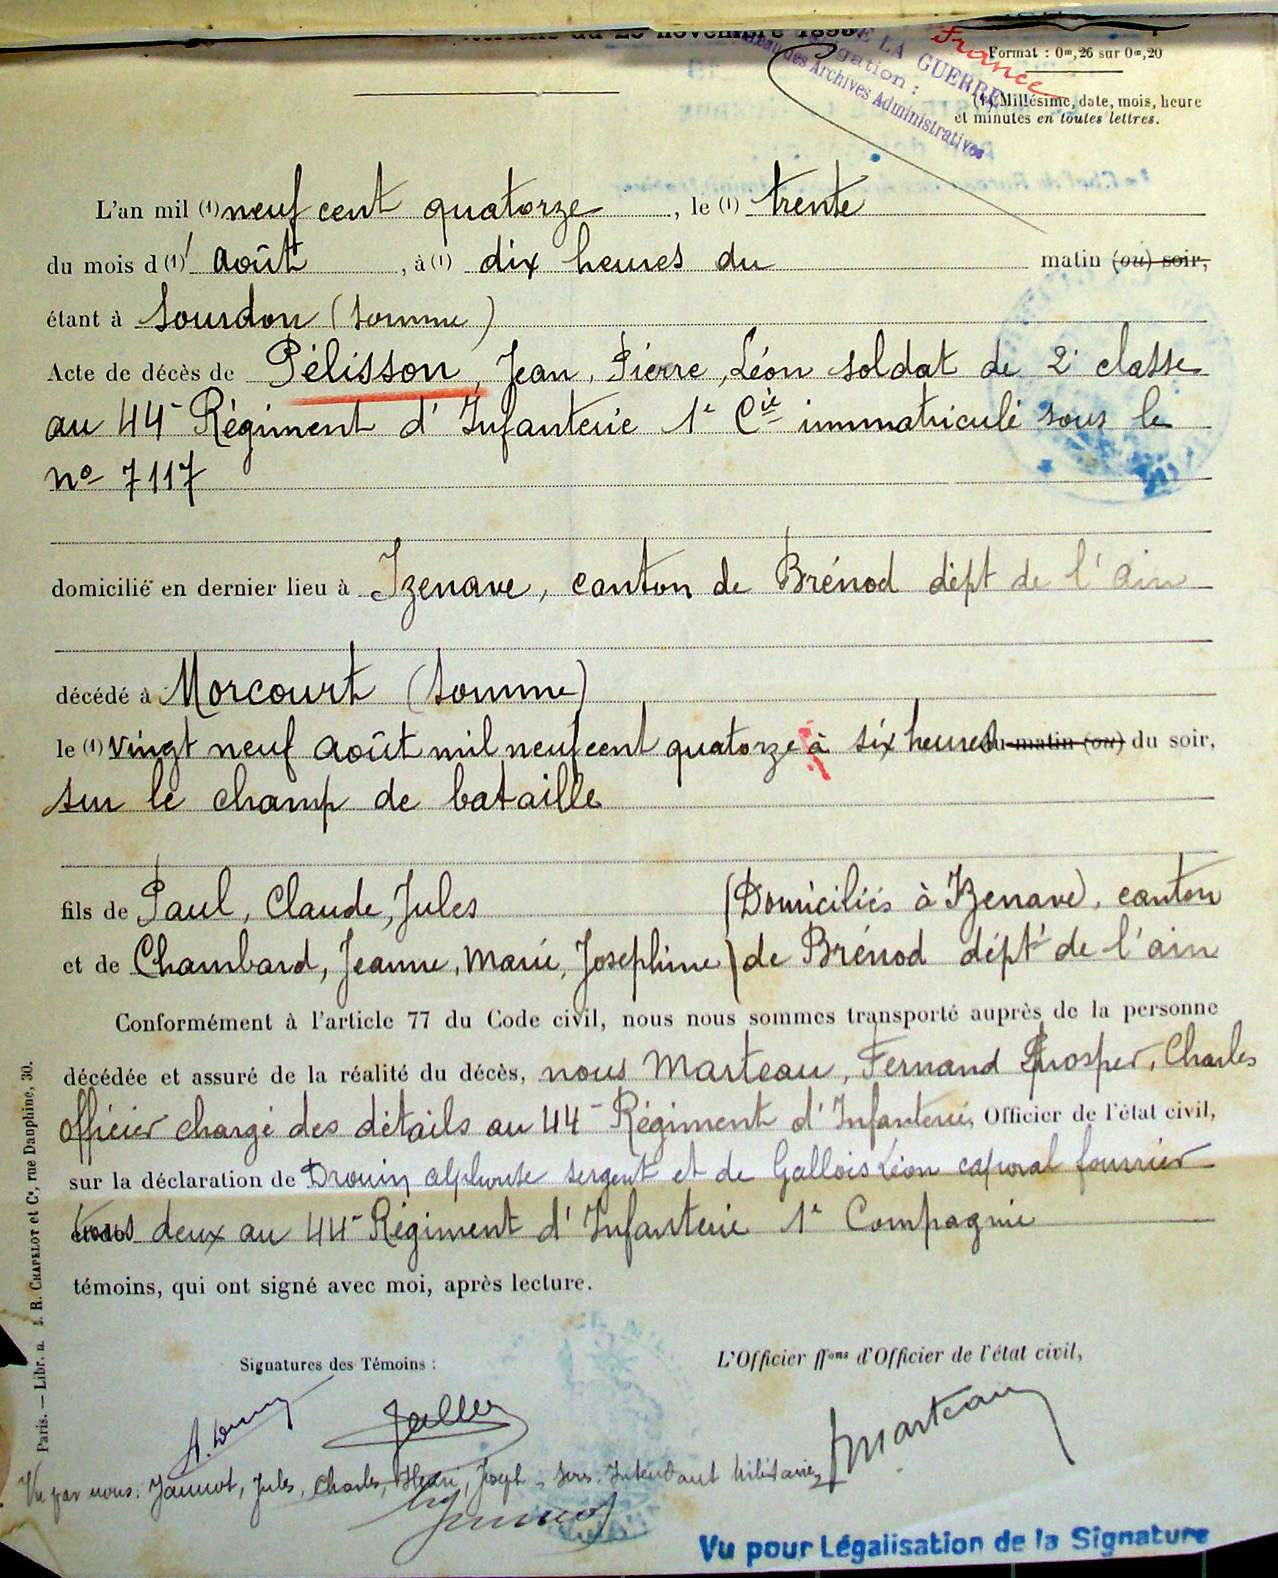 du 25 novembre 1895
France
DE LA GUERRE
Format : 0m,26 sur 0m,20
des Archives Administratives
(1) Millésime, date, mois, heure
et minutes en toutes lettres.
L'an mil (1) neuf cent quatorze, le (1) trente
du mois d (1) ' août, à (1) dix heures du matin (ou) soir,
étant à Sourdon (Somme)
Acte de décès de Pélisson, Jean, Pierre, Léon soldat de 2e classe
au 44e Régiment d'Infanterie 1e Cie immatriculé sous le
no 7117
domicilié en dernier lieu à Izenave, canton de Brénod dépt de l'ain
décédé à Morcourt (Somme)
le (1) vingt neuf août mil neuf cent quatorze à six heures du matin (ou) du soir,
sur le champ de bataille
fils de Paul, Claude, Jules (Domiciliés à Izenave), canton
et de Chambard, Jeanne, Marie, Josephine) de Brénod dépt de l'ain
Conformément à l'article 77 du Code civil, nous nous sommes transporté auprès de la personne
décédée et assuré de la réalité du décès, nous Marteau, Fernand Prosper, Charles
officier chargé des détails au 44e Régiment d'Infanterie, Officier de l'état civil,
sur la déclaration de Drouin alphonse sergent et de Gallois Léon caporal fourrier
tous deux au 44e Régiment d'Infanterie 1e Compagnie
témoins, qui ont signé avec moi, après lecture.
Paris. — Libr. R. CHAPELOT et Ce, rue Dauphine, 30.
Signatures des Témoins :
L'Officier ffons d'Officier de l'état civil,
Marteau
Vu par nous: Jannot, Jules, Charles, Henri, Joseph, Sous Intendant Militaire,
Vu pour Légalisation de la Signature